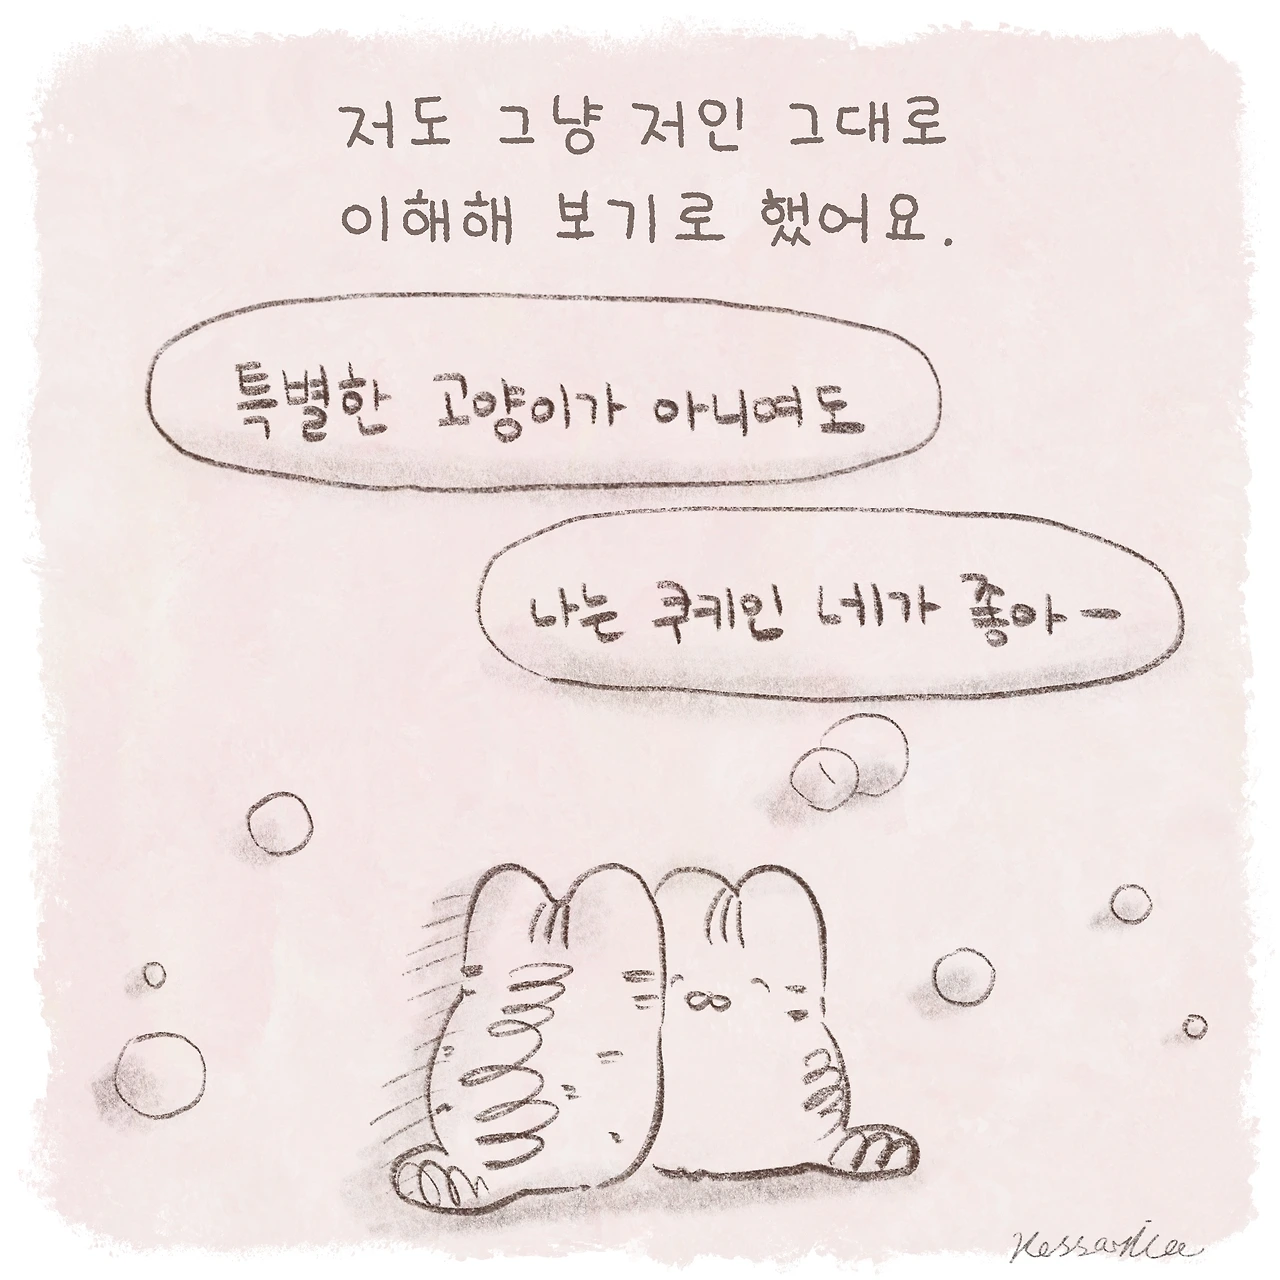 저도 그냥 저인 그대로
이해해 보기로 했어요.
특별한 고양이가 아니여도
나는 쿠키인 네가 좋아-